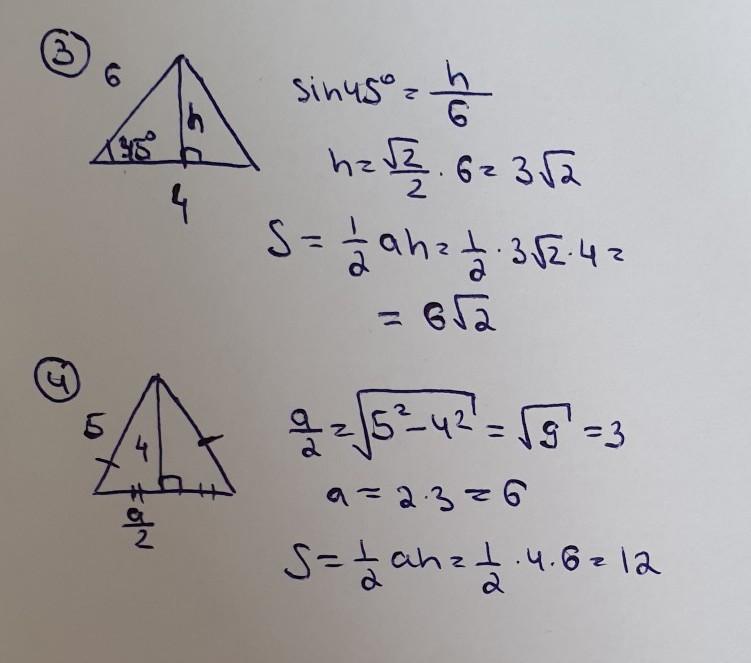 ③ 6
45° h
4
sin45° = h/6
h = √2/2 · 6 = 3√2
S = 1/2 ah = 1/2 · 3√2 · 4 =
= 6√2
④ 5
4
a/2
a/2 = √(5² - 4²) = √9 = 3
a = 2 · 3 = 6
S = 1/2 ah = 1/2 · 4 · 6 = 12